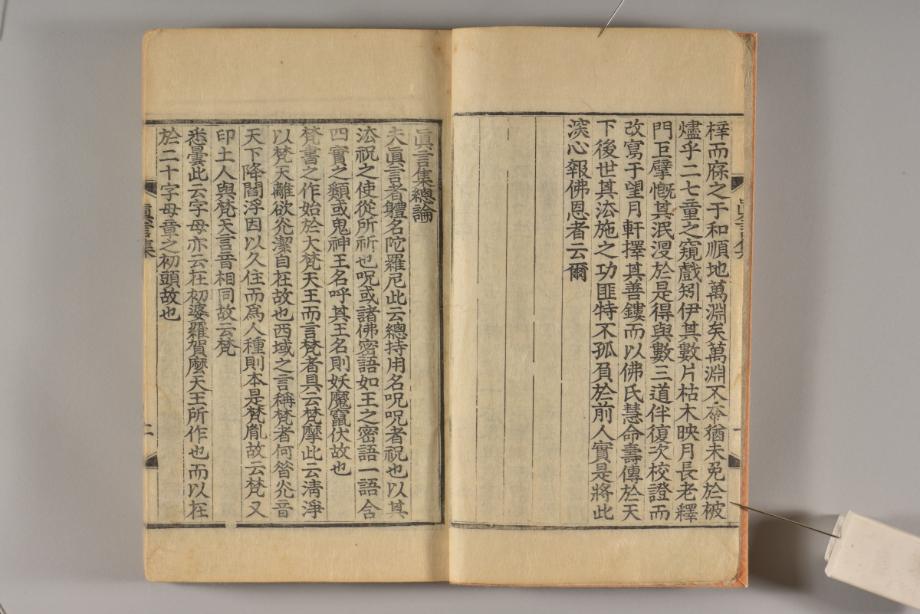 梓而庥之于和順地萬淵矣萬淵不吞猶未免於被
燼乎二七童之窺戲矧伊其數片枯木映月長老釋
門巨擘慨其泯沒於是得與數三道伴復次校證而
改寫于望月軒擇其善鏤而以佛氏慧命壽傳於天
下後世其法施之功匪特不孤負於前人實是將此
深心報佛恩者云爾
眞言集
一
眞言集總論
夫眞言者體名陀羅尼此云總持用名呪呪者祝也以其
法祝之使從所祈也呪或諸佛密語如王之密語一語含
四實之類或鬼神王名呼其王名則妖魔竄伏故也
梵書之作始於大梵天王而言梵者具云梵摩此云清淨
以梵天離欲光潔自在故也西域之言稱梵者何昝光音
天下降閻浮因以久住而爲人種則本是梵胤故云梵又
印土人與梵天言音相同故云梵
悉曇此云字母亦云在初婆羅賀麼天王所作也而以在
於二十字母章之初頭故也
眞言集
二